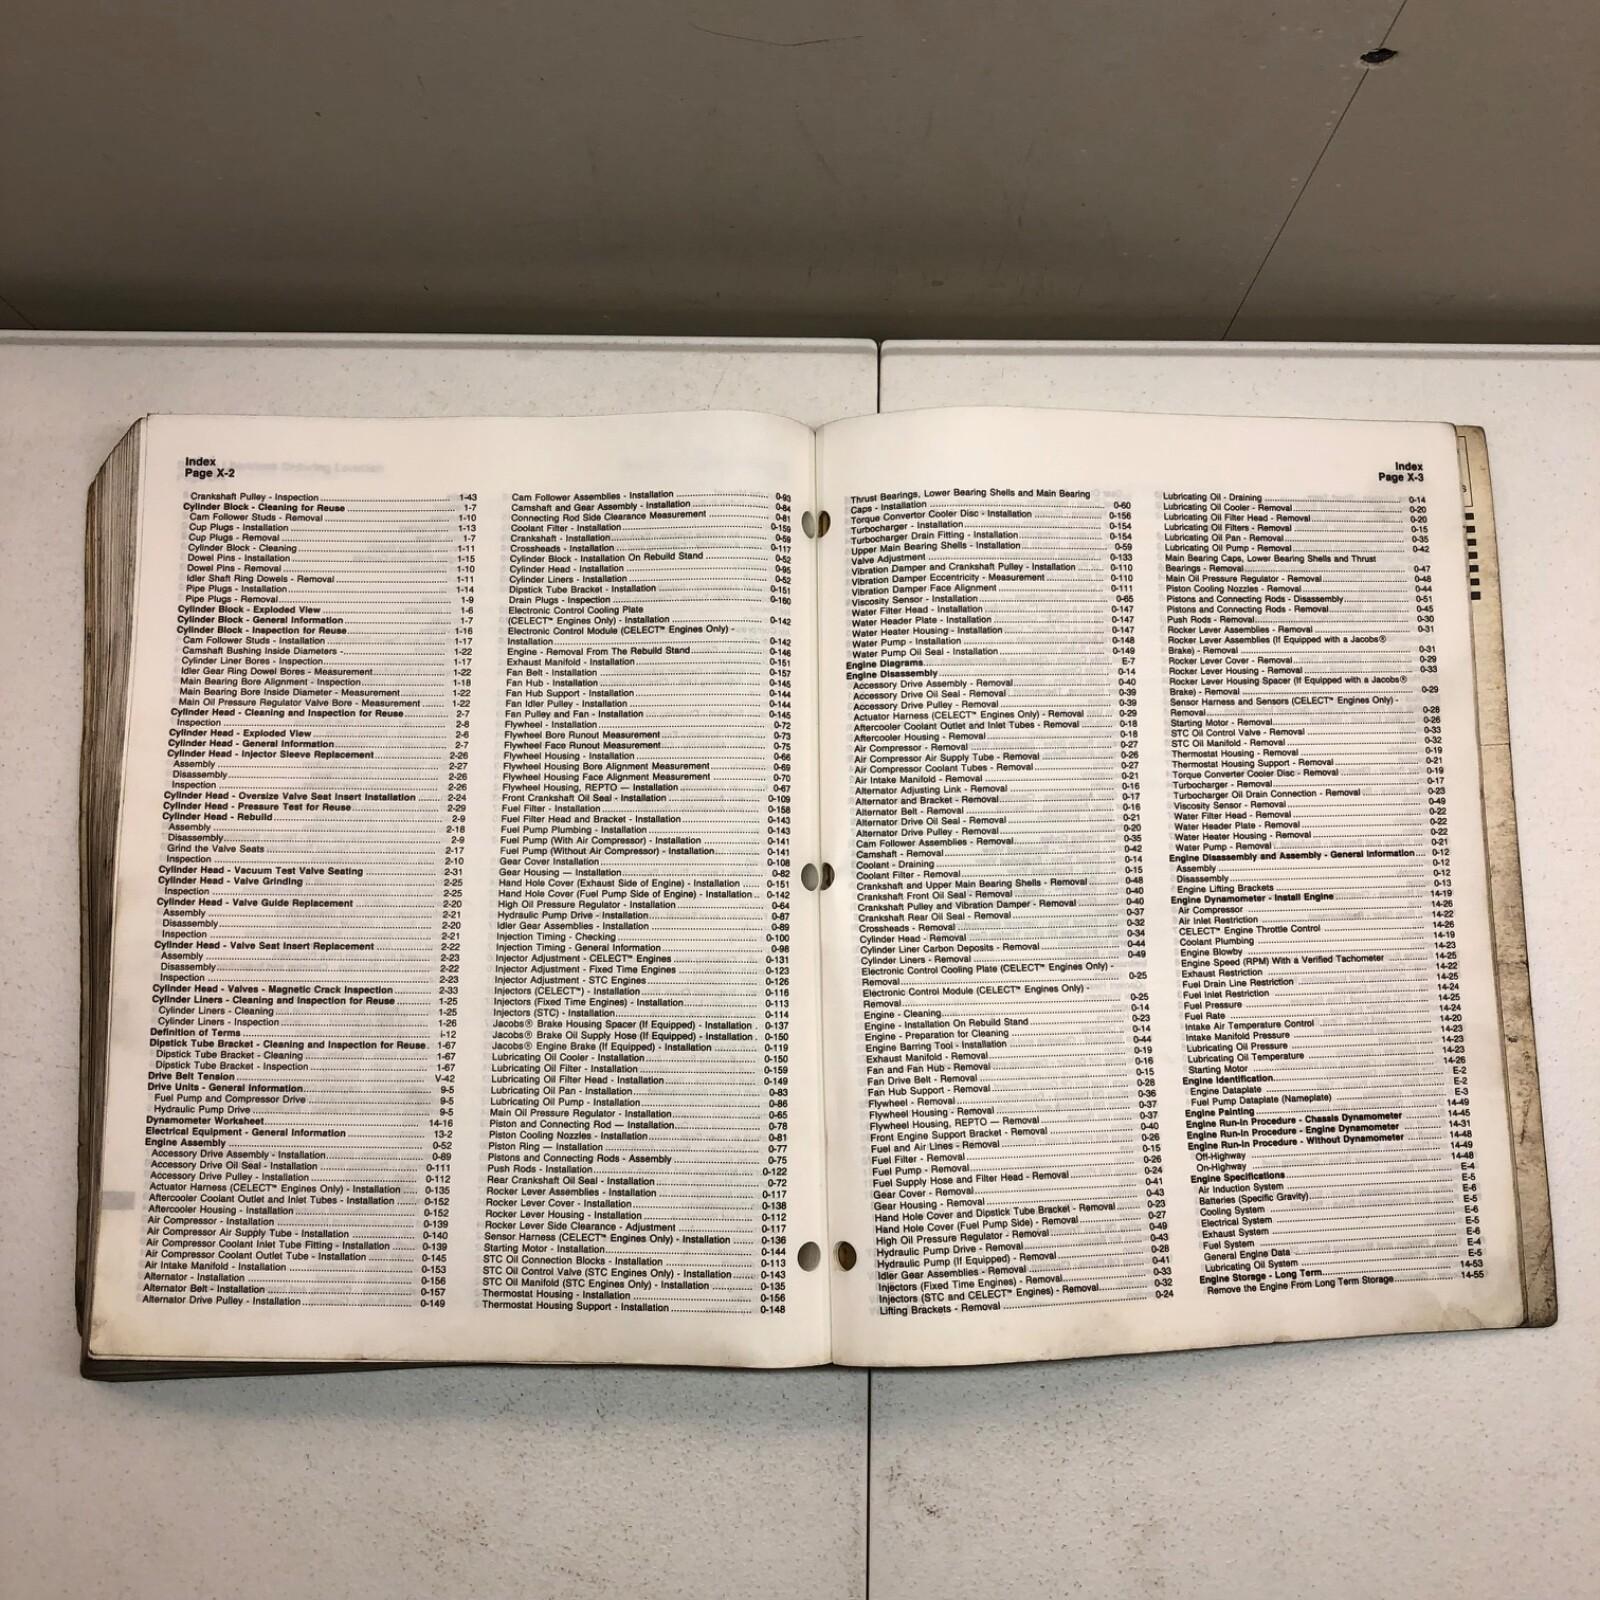 Index
Page X-2
Crankshaft Pulley - Inspection 1-43
Cylinder Block - Cleaning for Reuse 1-7
Cam Follower Studs - Removal 1-10
Cup Plugs - Installation 1-13
Cup Plugs - Removal 1-7
Cylinder Block - Cleaning 1-11
Dowel Pins - Installation 1-15
Dowel Pins - Removal 1-10
Idler Shaft Ring Dowels - Removal 1-11
Pipe Plugs - Installation 1-14
Pipe Plugs - Removal 1-9
Cylinder Block - Exploded View 1-6
Cylinder Block - General Information 1-7
Cylinder Block - Inspection for Reuse 1-16
Cam Follower Studs - Installation 1-17
Camshaft Bushing Inside Diameters - 1-22
Cylinder Liner Bores - Inspection 1-17
Idler Gear Ring Dowel Bores - Measurement 1-22
Main Bearing Bore Alignment - Inspection 1-18
Main Bearing Bore Inside Diameter - Measurement 1-22
Main Oil Pressure Regulator Valve Bore - Measurement 1-22
Cylinder Head - Cleaning and Inspection for Reuse 2-7
Inspection 2-8
Cylinder Head - Exploded View 2-6
Cylinder Head - General Information 2-7
Cylinder Head - Injector Sleeve Replacement 2-26
Assembly 2-27
Disassembly 2-26
Inspection 2-26
Cylinder Head - Oversize Valve Seat Insert Installation 2-24
Cylinder Head - Pressure Test for Reuse 2-29
Cylinder Head - Rebuild 2-9
Assembly 2-18
Disassembly 2-9
Grind the Valve Seats 2-17
Inspection 2-10
Cylinder Head - Vacuum Test Valve Seating 2-31
Cylinder Head - Valve Grinding 2-25
Inspection 2-25
Cylinder Head - Valve Guide Replacement 2-20
Assembly 2-21
Disassembly 2-20
Inspection 2-21
Cylinder Head - Valve Seat Insert Replacement 2-22
Assembly 2-23
Disassembly 2-22
Inspection 2-23
Cylinder Head - Valves - Magnetic Crack Inspection 2-33
Cylinder Liners - Cleaning and Inspection for Reuse 1-25
Cylinder Liners - Cleaning 1-25
Cylinder Liners - Inspection 1-26
Definition of Terms i-12
Dipstick Tube Bracket - Cleaning and Inspection for Reuse 1-67
Dipstick Tube Bracket - Cleaning 1-67
Dipstick Tube Bracket - Inspection 1-67
Drive Belt Tension V-42
Drive Units - General Information 9-5
Fuel Pump and Compressor Drive 9-5
Hydraulic Pump Drive 9-5
Dynamometer Worksheet 14-16
Electrical Equipment - General Information 13-2
Engine Assembly 0-52
Accessory Drive Assembly - Installation 0-89
Accessory Drive Oil Seal - Installation 0-111
Accessory Drive Pulley - Installation 0-112
Actuator Harness (CELECT™ Engines Only) - Installation 0-135
Aftercooler Coolant Outlet and Inlet Tubes - Installation 0-152
Aftercooler Housing - Installation 0-152
Air Compressor - Installation 0-139
Air Compressor Air Supply Tube - Installation 0-140
Air Compressor Coolant Inlet Tube Fitting - Installation 0-139
Air Compressor Coolant Outlet Tube - Installation 0-145
Air Intake Manifold - Installation 0-153
Alternator - Installation 0-156
Alternator Belt - Installation 0-157
Alternator Drive Pulley - Installation 0-149
Cam Follower Assemblies - Installation 0-93
Camshaft and Gear Assembly - Installation 0-84
Connecting Rod Side Clearance Measurement 0-81
Coolant Filter - Installation 0-159
Crankshaft - Installation 0-59
Crossheads - Installation 0-117
Cylinder Block - Installation On Rebuild Stand 0-52
Cylinder Head - Installation 0-95
Cylinder Liners - Installation 0-52
Dipstick Tube Bracket - Installation 0-151
Drain Plugs - Inspection 0-160
Electronic Control Cooling Plate
(CELECT™ Engines Only) - Installation 0-142
Electronic Control Module (CELECT™ Engines Only) -
Installation 0-142
Engine - Removal From The Rebuild Stand 0-146
Exhaust Manifold - Installation 0-151
Fan Belt - Installation 0-157
Fan Hub - Installation 0-145
Fan Hub Support - Installation 0-144
Fan Idler Pulley - Installation 0-144
Fan Pulley and Fan - Installation 0-145
Flywheel - Installation 0-72
Flywheel Bore Runout Measurement 0-73
Flywheel Face Runout Measurement 0-75
Flywheel Housing - Installation 0-66
Flywheel Housing Bore Alignment Measurement 0-69
Flywheel Housing Face Alignment Measurement 0-70
Flywheel Housing, REPTO — Installation 0-67
Front Crankshaft Oil Seal - Installation 0-109
Fuel Filter - Installation 0-158
Fuel Filter Head and Bracket - Installation 0-143
Fuel Pump Plumbing - Installation 0-143
Fuel Pump (With Air Compressor) - Installation 0-141
Fuel Pump (Without Air Compressor) - Installation 0-141
Gear Cover Installation 0-108
Gear Housing — Installation 0-82
Hand Hole Cover (Exhaust Side of Engine) - Installation 0-151
Hand Hole Cover (Fuel Pump Side of Engine) - Installation 0-142
High Oil Pressure Regulator - Installation 0-64
Hydraulic Pump Drive - Installation 0-87
Idler Gear Assemblies - Installation 0-89
Injection Timing - Checking 0-100
Injection Timing - General Information 0-98
Injector Adjustment - CELECT™ Engines 0-131
Injector Adjustment - Fixed Time Engines 0-123
Injector Adjustment - STC Engines 0-126
Injectors (CELECT™) - Installation 0-116
Injectors (Fixed Time Engines) - Installation 0-113
Injectors (STC) - Installation 0-114
Jacobs® Brake Housing Spacer (If Equipped) - Installation 0-137
Jacobs® Brake Oil Supply Hose (If Equipped) - Installation 0-150
Jacobs® Engine Brake (If Equipped) - Installation 0-119
Lubricating Oil Cooler - Installation 0-150
Lubricating Oil Filter - Installation 0-159
Lubricating Oil Filter Head - Installation 0-149
Lubricating Oil Pan - Installation 0-83
Lubricating Oil Pump - Installation 0-86
Main Oil Pressure Regulator - Installation 0-65
Piston and Connecting Rod — Installation 0-78
Piston Cooling Nozzles - Installation 0-81
Piston Ring — Installation 0-77
Pistons and Connecting Rods - Assembly 0-75
Push Rods - Installation 0-122
Rear Crankshaft Oil Seal - Installation 0-72
Rocker Lever Assemblies - Installation 0-117
Rocker Lever Cover - Installation 0-138
Rocker Lever Housing - Installation 0-112
Rocker Lever Side Clearance - Adjustment 0-117
Sensor Harness (CELECT™ Engines Only) - Installation 0-136
Starting Motor - Installation 0-144
STC Oil Connection Blocks - Installation 0-113
STC Oil Control Valve (STC Engines Only) - Installation 0-143
STC Oil Manifold (STC Engines Only) - Installation 0-135
Thermostat Housing - Installation 0-156
Thermostat Housing Support - Installation 0-148
Index
Page X-3
Thrust Bearings, Lower Bearing Shells and Main Bearing
Caps - Installation 0-60
Torque Convertor Cooler Disc - Installation 0-156
Turbocharger - Installation 0-154
Turbocharger Drain Fitting - Installation 0-154
Upper Main Bearing Shells - Installation 0-59
Valve Adjustment 0-133
Vibration Damper and Crankshaft Pulley - Installation 0-110
Vibration Damper Eccentricity - Measurement 0-110
Vibration Damper Face Alignment 0-111
Viscosity Sensor - Installation 0-65
Water Filter Head - Installation 0-147
Water Header Plate - Installation 0-147
Water Heater Housing - Installation 0-147
Water Pump - Installation 0-148
Water Pump Oil Seal - Installation 0-149
Engine Diagrams E-7
Engine Disassembly 0-14
Accessory Drive Assembly - Removal 0-40
Accessory Drive Oil Seal - Removal 0-39
Accessory Drive Pulley - Removal 0-39
Actuator Harness (CELECT™ Engines Only) - Removal 0-29
Aftercooler Coolant Outlet and Inlet Tubes - Removal 0-18
Aftercooler Housing - Removal 0-18
Air Compressor - Removal 0-27
Air Compressor Air Supply Tube - Removal 0-26
Air Compressor Coolant Tubes - Removal 0-27
Air Intake Manifold - Removal 0-21
Alternator Adjusting Link - Removal 0-16
Alternator and Bracket - Removal 0-17
Alternator Belt - Removal 0-16
Alternator Drive Oil Seal - Removal 0-21
Alternator Drive Pulley - Removal 0-20
Cam Follower Assemblies - Removal 0-35
Camshaft - Removal 0-42
Coolant - Draining 0-14
Coolant Filter - Removal 0-15
Crankshaft and Upper Main Bearing Shells - Removal 0-48
Crankshaft Front Oil Seal - Removal 0-40
Crankshaft Pulley and Vibration Damper - Removal 0-40
Crankshaft Rear Oil Seal - Removal 0-37
Crossheads - Removal 0-32
Cylinder Head - Removal 0-34
Cylinder Liner Carbon Deposits - Removal 0-44
Cylinder Liners - Removal 0-49
Electronic Control Cooling Plate (CELECT™ Engines Only) -
Removal 0-25
Electronic Control Module (CELECT™ Engines Only) -
Removal 0-25
Engine - Cleaning 0-14
Engine - Installation On Rebuild Stand 0-23
Engine - Preparation for Cleaning 0-14
Engine Barring Tool - Installation 0-44
Exhaust Manifold - Removal 0-19
Fan and Fan Hub - Removal 0-16
Fan Drive Belt - Removal 0-15
Fan Hub Support - Removal 0-28
Flywheel - Removal 0-36
Flywheel Housing - Removal 0-37
Flywheel Housing, REPTO — Removal 0-37
Front Engine Support Bracket - Removal 0-40
Fuel and Air Lines - Removal 0-26
Fuel Filter - Removal 0-15
Fuel Pump - Removal 0-26
Fuel Supply Hose and Filter Head - Removal 0-24
Gear Cover - Removal 0-41
Gear Housing - Removal 0-43
Hand Hole Cover and Dipstick Tube Bracket - Removal 0-23
Hand Hole Cover (Fuel Pump Side) - Removal 0-27
High Oil Pressure Regulator - Removal 0-49
Hydraulic Pump Drive - Removal 0-43
Hydraulic Pump (If Equipped) - Removal 0-28
Idler Gear Assemblies - Removal 0-41
Injectors (Fixed Time Engines) - Removal 0-33
Injectors (STC and CELECT Engines) - Removal 0-32
Lifting Brackets - Removal 0-24
Lubricating Oil - Draining 0-14
Lubricating Oil Cooler - Removal 0-20
Lubricating Oil Filter Head - Removal 0-20
Lubricating Oil Filters - Removal 0-15
Lubricating Oil Pan - Removal 0-35
Lubricating Oil Pump - Removal 0-42
Main Bearing Caps, Lower Bearing Shells and Thrust
Bearings - Removal 0-47
Main Oil Pressure Regulator - Removal 0-48
Piston Cooling Nozzles - Removal 0-44
Pistons and Connecting Rods - Disassembly 0-51
Pistons and Connecting Rods - Removal 0-45
Push Rods - Removal 0-30
Rocker Lever Assemblies - Removal 0-31
Rocker Lever Assemblies (If Equipped with a Jacobs®
Brake) - Removal 0-31
Rocker Lever Cover - Removal 0-29
Rocker Lever Housing - Removal 0-33
Rocker Lever Housing Spacer (If Equipped with a Jacobs®
Brake) - Removal 0-29
Sensor Harness and Sensors (CELECT™ Engines Only) -
Removal 0-28
Starting Motor - Removal 0-26
STC Oil Control Valve - Removal 0-33
STC Oil Manifold - Removal 0-32
Thermostat Housing - Removal 0-19
Thermostat Housing Support - Removal 0-21
Torque Converter Cooler Disc - Removal 0-19
Turbocharger - Removal 0-17
Turbocharger Oil Drain Connection - Removal 0-23
Viscosity Sensor - Removal 0-49
Water Filter Head - Removal 0-22
Water Header Plate - Removal 0-22
Water Heater Housing - Removal 0-22
Water Pump - Removal 0-21
Engine Disassembly and Assembly - General Information 0-12
Assembly 0-12
Disassembly 0-12
Engine Lifting Brackets 0-13
Engine Dynamometer - Install Engine 14-19
Air Compressor 14-26
Air Inlet Restriction 14-22
CELECT™ Engine Throttle Control 14-26
Coolant Plumbing 14-19
Engine Blowby 14-23
Engine Speed (RPM) With a Verified Tachometer 14-25
Exhaust Restriction 14-22
Fuel Drain Line Restriction 14-25
Fuel Inlet Restriction 14-24
Fuel Pressure 14-25
Fuel Rate 14-24
Intake Air Temperature Control 14-20
Intake Manifold Pressure 14-23
Lubricating Oil Pressure 14-23
Lubricating Oil Temperature 14-23
Starting Motor 14-26
Engine Identification E-2
Engine Dataplate E-2
Fuel Pump Dataplate (Nameplate) E-3
Engine Painting 14-49
Engine Run-In Procedure - Chassis Dynamometer 14-45
Engine Run-In Procedure - Engine Dynamometer 14-31
Engine Run-In Procedure - Without Dynamometer 14-48
Off-Highway 14-49
On-Highway 14-48
Engine Specifications E-4
Air Induction System E-5
Batteries (Specific Gravity) E-6
Cooling System E-5
Electrical System E-6
Exhaust System E-5
Fuel System E-6
General Engine Data E-4
Lubricating Oil System E-5
Engine Storage - Long Term 14-53
Remove the Engine From Long Term Storage 14-55